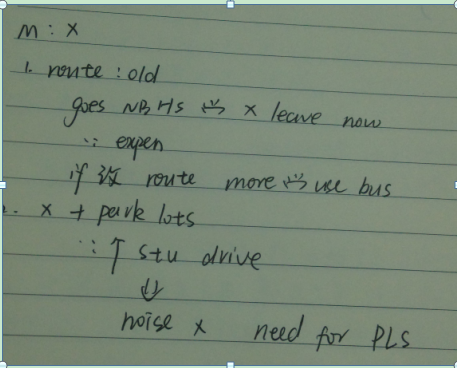 M : x
1. route : old
goes NBHS 人 x leave now
∵ expen
if 改 route more 人 use bus
2. x + park lots
∵ ↑ stu drive
⇓
noise x need for PLS